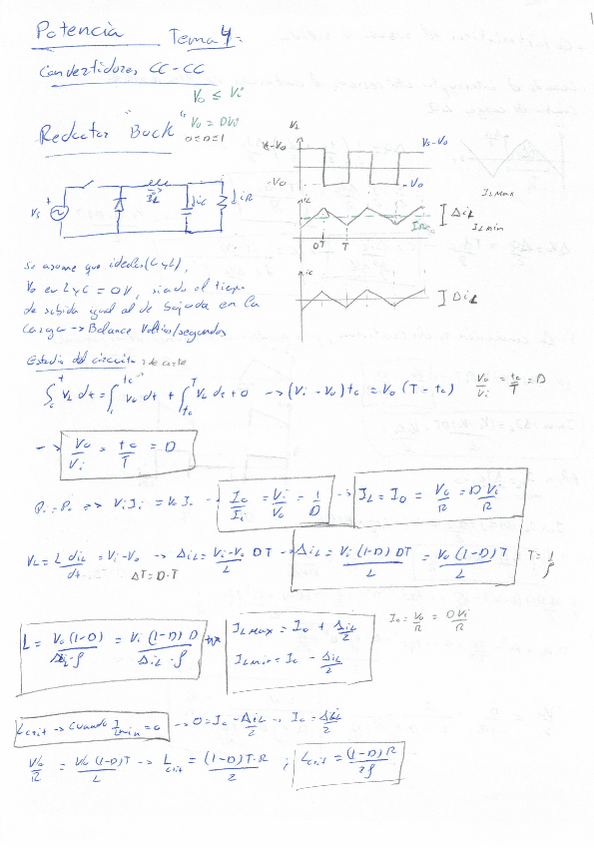 1
Potencia Tema 4:
Convertidores CC-CC
Vo ≤ Vi
Reductor "Buck" Vo = DVi
0≤D≤1
VL
Vi-Vo Vs-Vo
-Vo -Vo
iL ILmax
ΔiL
ILmin
DT T
iC
ΔiL
Vi iL iC iR
Se asume que ideales (C y L),
Vo en L y C = 0V, siendo el tiempo
de subida igual al de bajada en la
carga -> Balance Voltios/segundos
Estudio del circuito
∫ VL dt = ∫ VL dt + ∫ VL dt = 0 -> (Vi - Vo) tc = Vo (T - tc) Vo/Vi = tc/T = D
-> Vo/Vi = tc/T = D
Pi = Po => Vi Ii = Vo Io -> Io/Ii = Vi/Vo = 1/D -> IL = IO = Vo/R = D Vi/R
VL = L diL/dt = Vi-Vo -> ΔiL = Vi-Vo/L DT -> ΔiL = Vi (1-D) DT/L = Vo (1-D) T/L T = 1/f
ΔT = D·T
L = Vo (1-D)/ΔiL·f = Vi (1-D) D/ΔiL·f
ILmax = Io + ΔiL/2
ILmin = Io - ΔiL/2
Io = Vo/R = DVi/R
Lcrit -> Cuando ILmin = 0 -> 0 = Io - ΔiL/2 -> Io = ΔiL/2
Vo/R = Vo (1-D)T/L -> Lcrit = (1-D)T·R/2 ; Lcrit = (1-D) R/2f